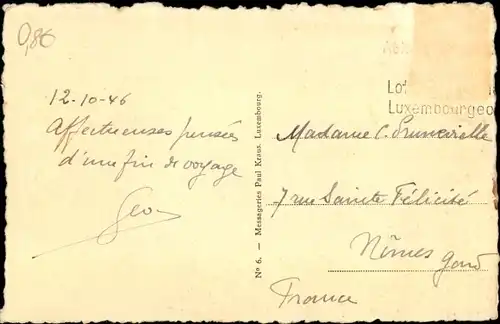 0,80
12-10-46
Affectueuses pensées
d'une fin de voyage
Geo
N° 6. — Messageries Paul Kraus. Luxembourg.
Luxembourgeo
Madame C.
7 rue Sainte Félicité
Nîmes Gard
France